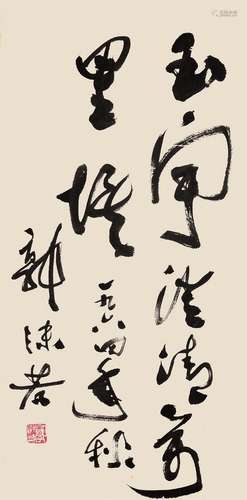 玉宇澄清萬
里埃 一九六四年秋
郭沫若